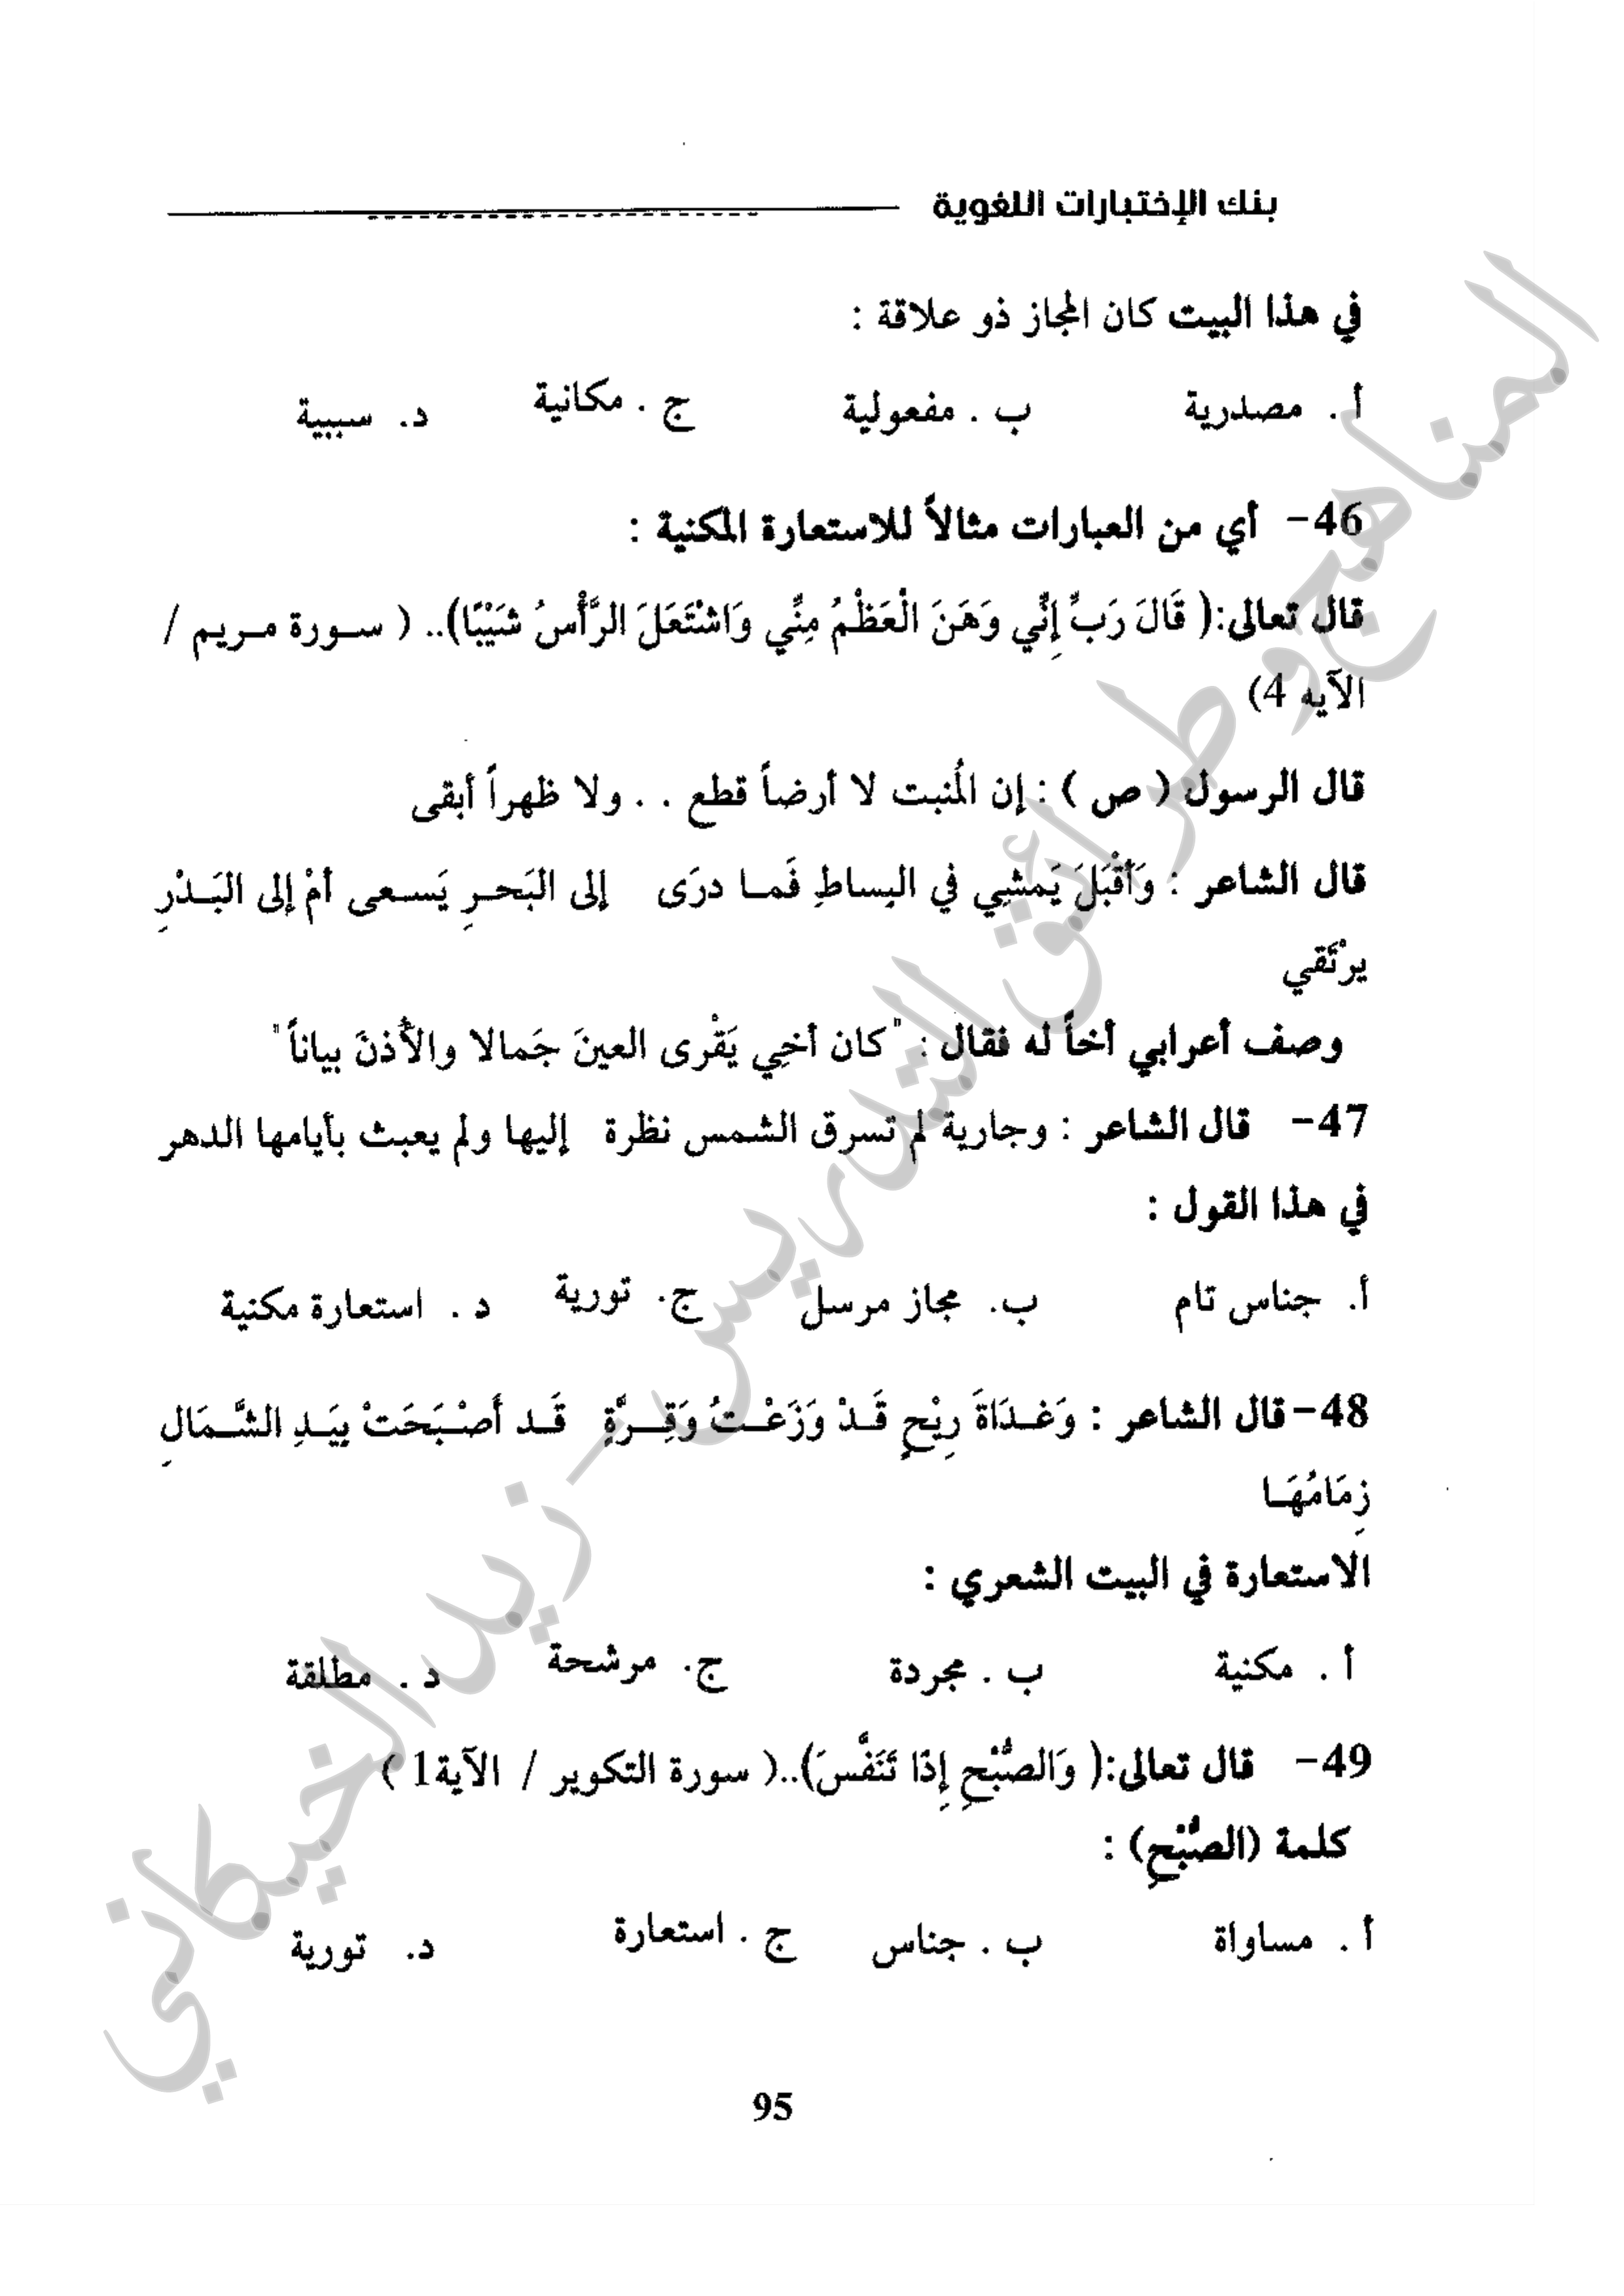 بنك الإختبارات اللغوية
في هذا البيت كان المجاز ذو علاقة :
أ . مصدرية ب . مفعولية ج . مكانية د. سببية
46- أي من العبارات مثالاً للاستعارة المكنية :
قال تعالى:( قَالَ رَبِّ إِنِّي وَهَنَ الْعَظْمُ مِنِّي وَاشْتَعَلَ الرَّأْسُ شَيْبًا).. ( سورة مريم /
الآيه 4)
قال الرسول ( ص ) : إن المُنبت لا أرضاً قطع . . ولا ظهراً أبقى
قال الشاعر : وَأَقْبَلَ يَمشِي في البِساطِ فَما درَى إلى البَحرِ يَسعى أمْ إلى البَدْرِ
يرْتَقي
وصف أعرابي أخاً له فقال : "كان أخِي يَقْرى العينَ جَمالا والأُذنَ بياناً"
47- قال الشاعر : وجارية لم تسرق الشمس نظرة إليها ولم يعبث بأيامها الدهر
في هذا القول :
أ. جناس تام ب. مجاز مرسل ج. تورية د . استعارة مكنية
48- قال الشاعر : وَغدَاةَ رِيْحٍ قَدْ وَزَعْتُ وَقِرَّةٍ قَد أَصْبَحَتْ بِيَدِ الشَّمَالِ
زِمَامُهَا
الاستعارة في البيت الشعري :
أ . مكنية ب . مجردة ج. مرشحة د . مطلقة
49- قال تعالى:( وَالصُّبْحِ إِذَا تَنَفَّسَ)..( سورة التكوير / الآية1 )
كلمة (الصُّبْحِ) :
أ . مساواة ب . جناس ج . استعارة د. تورية
95
المناهج وطرائق التدريس - زيد الخيكاني